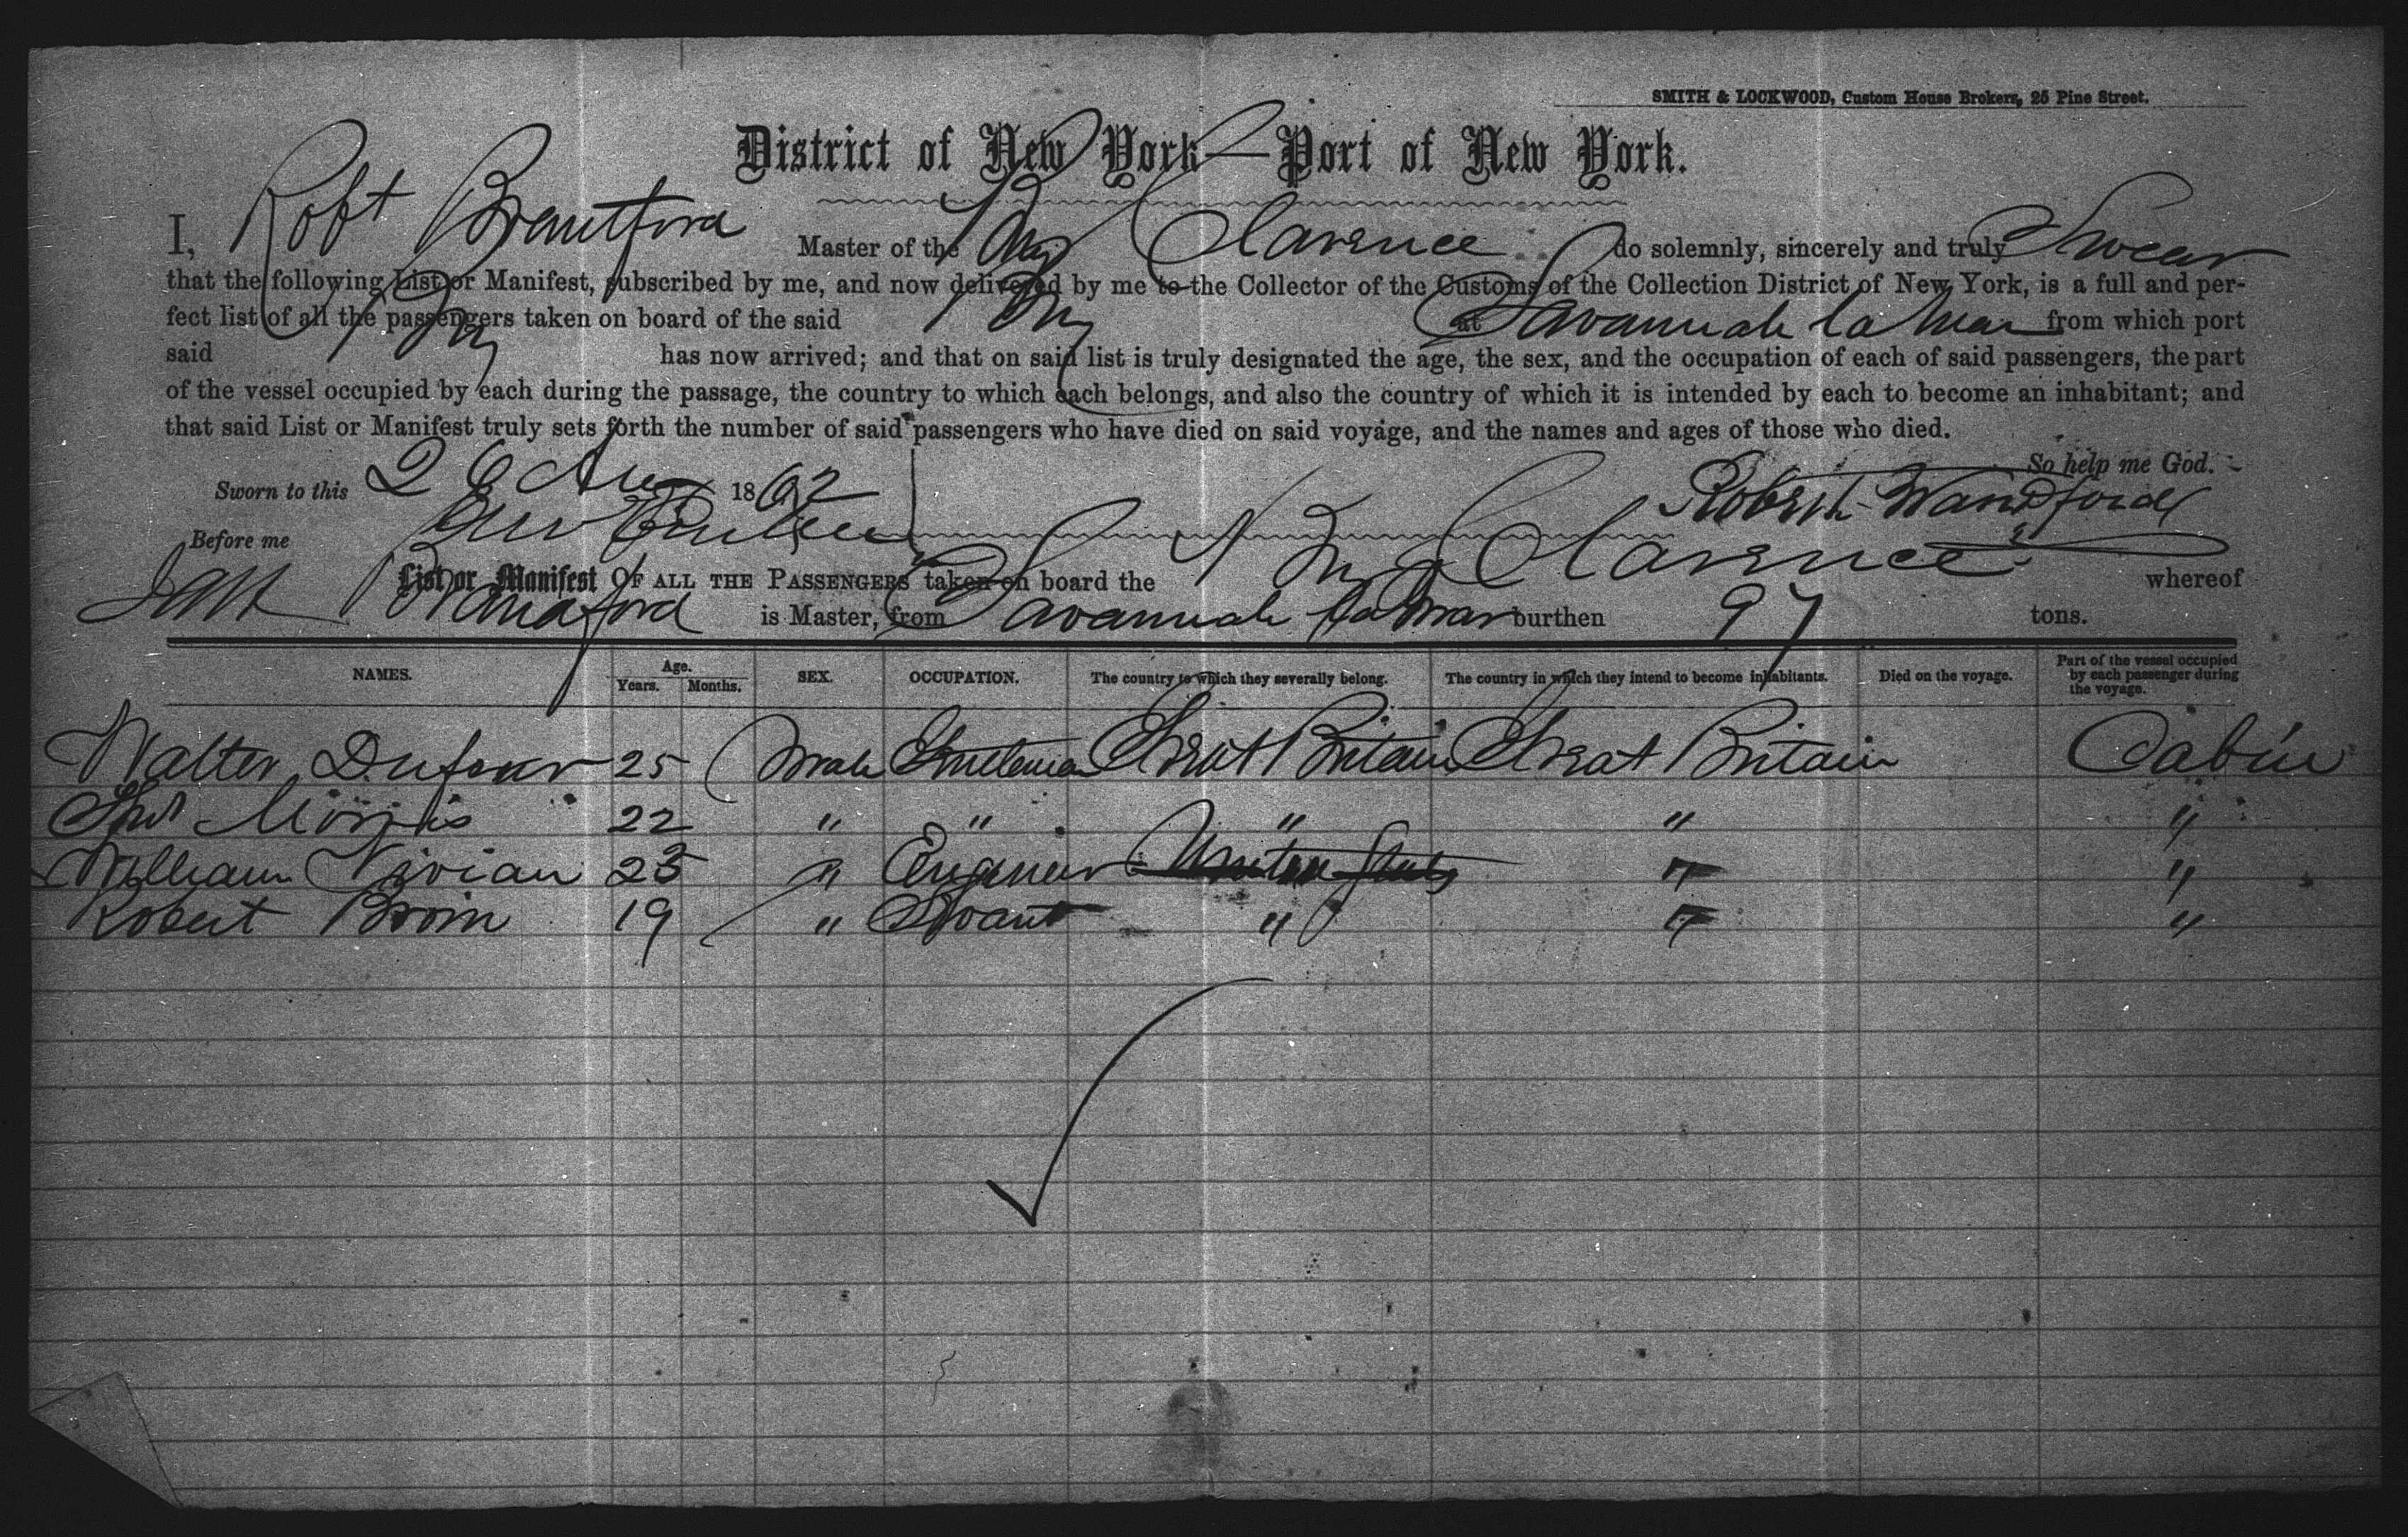 SMITH & LOCKWOOD, Custom House Brokers, 25 Pine Street.
District of New York—Port of New York.
I, Robt Brantford Master of the Brig Clarence do solemnly, sincerely and truly Swear
that the following List or Manifest, subscribed by me, and now delivered by me to the Collector of the Customs of the Collection District of New York, is a full and per-
fect list of all the passengers taken on board of the said Brig at Savannah la Mar from which port
said Brig has now arrived; and that on said list is truly designated the age, the sex, and the occupation of each of said passengers, the part
of the vessel occupied by each during the passage, the country to which each belongs, and also the country of which it is intended by each to become an inhabitant; and
that said List or Manifest truly sets forth the number of said passengers who have died on said voyage, and the names and ages of those who died.
So help me God.
Sworn to this 26 Aug 1862
Before me
List or Manifest OF ALL THE PASSENGERS taken on board the Brig Clarence whereof
is Master, from Savannah la Mar burthen 97 tons.
NAMES. Age. Years. Months. SEX. OCCUPATION. The country to which they severally belong. The country in which they intend to become inhabitants. Died on the voyage. Part of the vessel occupied by each passenger during the voyage.
Walter Dufour 25 Male Gentleman Great Britain Great Britain Cabin
Morris 22 " " " " "
William Vivian 23 " Engineer United States " "
Robert 19 " " " "